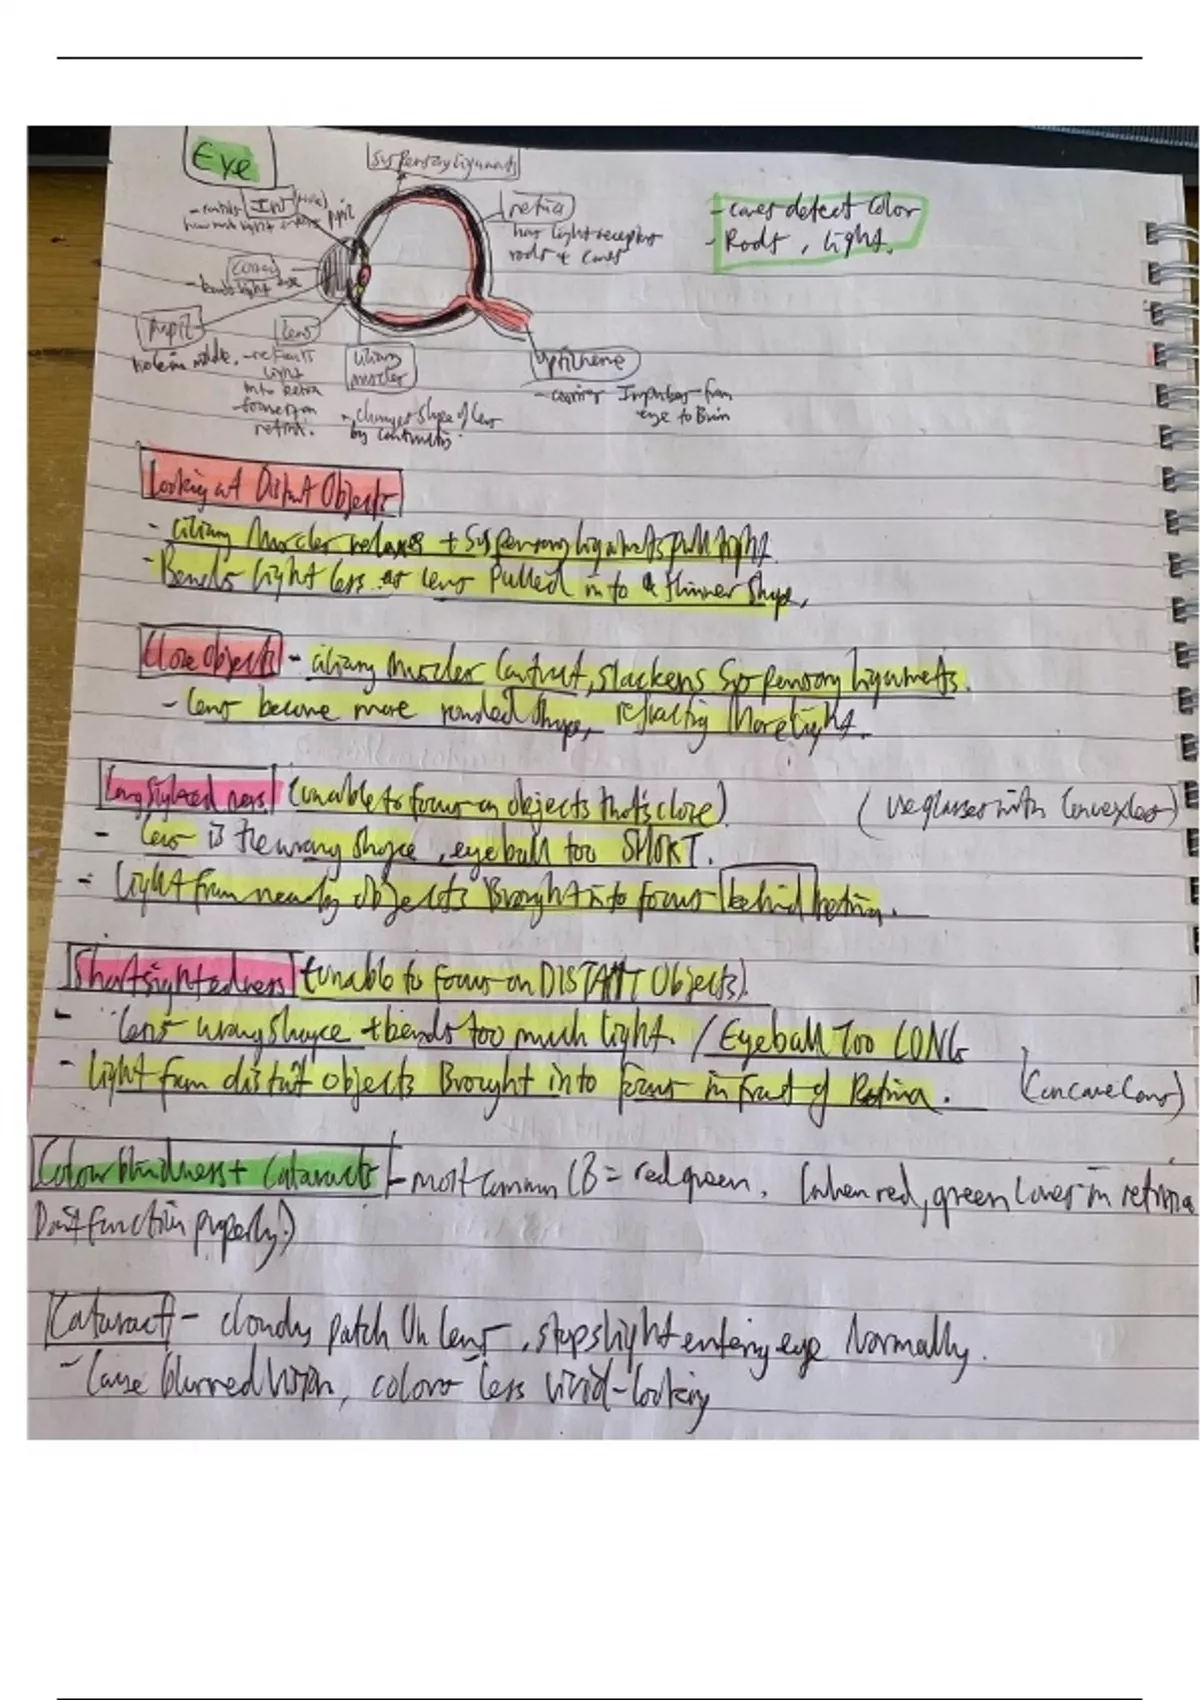 Eye
suspensory ligaments
Iris
- controls
how much light enters pupil
retina
has light receptors
rods & cones
- cones detect color
- Rods, light.
Cornea
- bends light
pupil
hole in middle.
lens
- refracts
light
into retina
- focuses on
retina.
ciliary
muscles
- changes shape of lens
by contracting.
optic nerve
- carries Impulses from
eye to Brain
Looking at Distant Objects
- ciliary Muscles relaxes + Suspensory ligaments pull tight.
- Bends light less as lens Pulled in to a thinner shape,
Close Objects - ciliary muscles Contract, slackens Suspensory ligaments.
- lens become more rounded shape, refracting More light.
Longsightedness (unable to focus on objects that's close) (use glasses with Convex lens)
- lens is the wrong shape, eyeball too SHORT.
- light from nearby objects Brought into focus behind Retina.
Shortsightedness (unable to focus on DISTANT Objects).
- lens wrong shape + bends too much light. / Eyeball Too LONG
- light from distant objects Brought into focus in front of Retina. (concave lens)
Colour blindness + Cataracts - most common CB = red green. (when red, green cones in retina
Don't function properly.)
Cataract - cloudy patch On lens, stops light entering eye Normally.
- Cause blurred vision, colors less vivid-looking